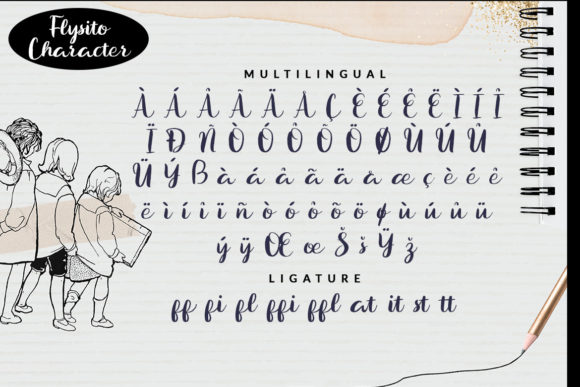 Flysito
Character
MULTILINGUAL
À Á Â Ã Ä Å Ç È É Ê Ë Ì Í Î
Ï Ð Ñ Ò Ó Ô Õ Ö Ø Ù Ú Û
Ü Ý ß à á â ã ä å æ ç è é ê
ë ì í î ï ñ ò ó ô õ ö ø ù ú û ü
ý ÿ Œ œ Š š Ÿ ž
LIGATURE
ff fi fl ffi ffl at it st tt